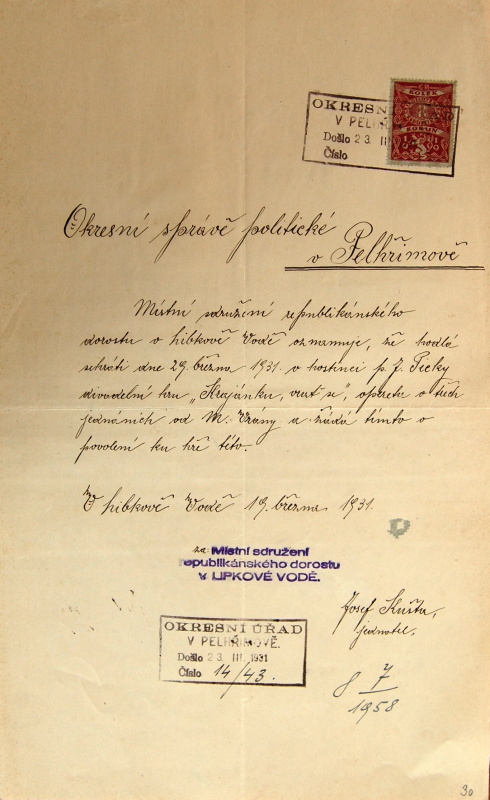 KOLEK
OKRESNÍ ÚŘAD
V PELHŘ
Došlo 23 III
Číslo
KORUN
5
Okresní správě politické
v Pelhřimově
Místní sdružení republikánského
dorostu v Libkově Vodě oznamuje, že hodlá
sehráti dne 29. března 1931 v hostinci p. J. Picky
divadelní hru „Krajánku, vrať se", operetu o třech
jednáních od M. Vrány a žádá tímto o
povolení ku hře této.
V Libkově Vodě 19. března 1931.
za: Místní sdružení
republikánského dorostu
v LIPKOVÉ VODĚ.
Josef Kušta,
jednatel.
OKRESNÍ ÚŘAD
V PELHŘIMOVĚ.
Došlo 23 III. 1931
Číslo 14/43.
8 7
1958
30